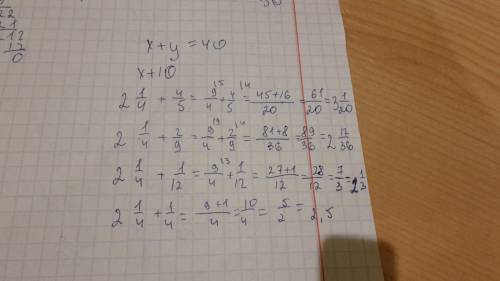 22
21
212
12
0
x+y=40
x+10
2 1/4 + 4/5 = 9/4 ⁽⁵ + 4/5 ⁽⁴ = 45+16/20 = 61/20 = 3 1/20
2 1/4 + 2/9 = 9/4 ⁽⁹ + 2/9 ⁽⁴ = 81+8/36 = 89/36 = 2 17/36
2 1/4 + 1/12 = 9/4 ⁽³ + 1/12 = 27+1/12 = 28/12 = 7/3 = 2 1/3
2 1/4 + 1/4 = 9+1/4 = 10/4 = 5/2 = 2,5